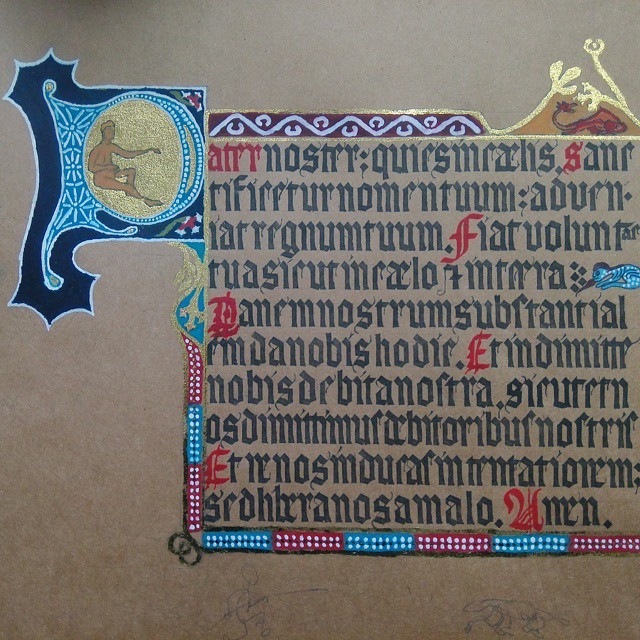 Pater noster: qui es in cælis. Sanc
tificetur nomen tuum: adven·
iat regnum tuum. Fiat voluntas
tua sicut in cælo ⁊ in terra:
Panem nostrum substancial
em da nobis hodie. Et indimitte
nobis debita nostra, sicut et n
os dimittimus debitoribus nostris
Et ne nos inducas in tentationem,
sed libera nos a malo. Amen.